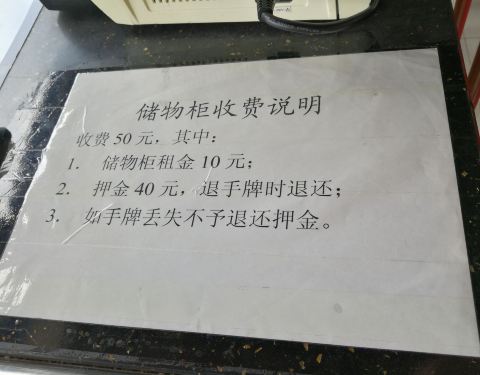 储物柜收费说明
收费50元，其中：
1. 储物柜租金10元；
2. 押金40元，退手牌时退还；
3. 如手牌丢失不予退还押金。